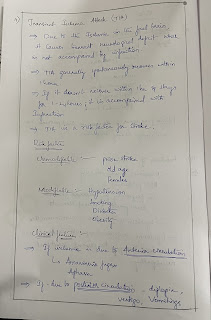 Transient Ischemic Attack (TIA)
→ Due to the ischemia in the focal brain,
it causes transient neurological deficit which
is not accompanied by infarction.
→ TIA generally spontaneously resolves within
→ If it doesn't resolve within
for it is accompanied with
Infarction
→ TIA is a risk factor for stroke.
Risk factors
Nonmodifiable - prior stroke
old age
Modifiable - Hypertension
Smoking
Diabetes
Obesity
Clinical features
→ If ischemia is due to Anterior circulation
Aphasia
→ If due to posterior circulation - diplopia,
vertigo, Vomitings